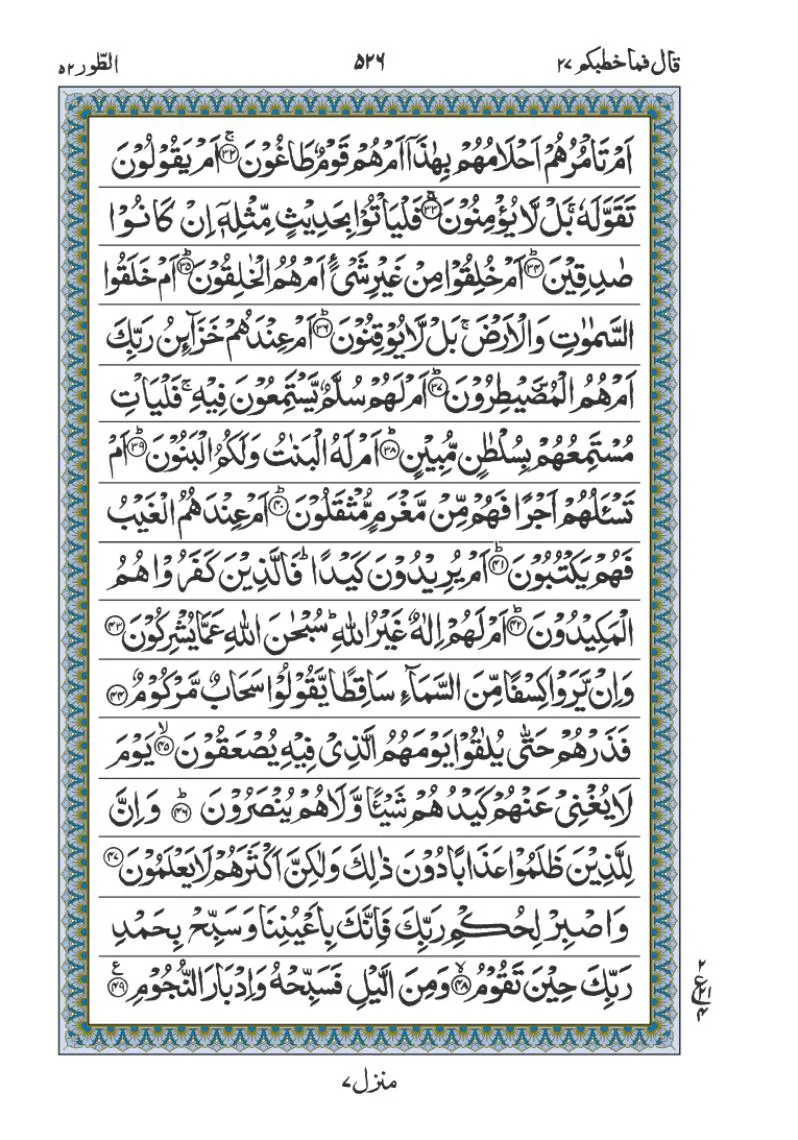 قال فما خطبكم ٢٧ ٥٢٦ الطّور ٥٢
اَمۡ تَاۡمُرُهُمۡ اَحۡلَامُهُمۡ بِهٰذَآ اَمۡ هُمۡ قَوۡمٌ طَاغُوۡنَ ۚ‏﴿۳۲﴾ اَمۡ يَقُوۡلُوۡنَ
تَقَوَّلَهٗ ۚ بَلْ لَّا يُؤۡمِنُوۡنَ‌ ۚ‏﴿۳۳﴾ فَلۡيَاۡتُوۡا بِحَدِيۡثٍ مِّثۡلِهٖۤ اِنۡ كَانُوۡا
صٰدِقِيۡنَ ؕ‏﴿۳۴﴾ اَمۡ خُلِقُوۡا مِنۡ غَيۡرِ شَىۡءٍ اَمۡ هُمُ الۡخٰلِقُوۡنَ ؕ‏﴿۳۵﴾ اَمۡ خَلَقُوا
السَّمٰوٰتِ وَالۡاَرۡضَ‌ ۚ بَلْ لَّا يُوۡقِنُوۡنَ ؕ‏﴿۳۶﴾ اَمۡ عِنۡدَهُمۡ خَزَآٮِٕنُ رَبِّكَ
اَمۡ هُمُ الۡمُصَۜيۡطِرُوۡنَ ؕ‏﴿۳۷﴾ اَمۡ لَهُمۡ سُلَّمٌ يَّسۡتَمِعُوۡنَ فِيۡهِ‌ ۚ فَلۡيَاۡتِ
مُسۡتَمِعُهُمۡ بِسُلۡطٰنٍ مُّبِيۡنٍ ؕ‏﴿۳۸﴾ اَمۡ لَهُ الۡبَنٰتُ وَلَكُمُ الۡبَنُوۡنَ ؕ‏﴿۳۹﴾ اَمۡ
تَسۡئَلُهُمۡ اَجۡرًا فَهُمۡ مِّنۡ مَّغۡرَمٍ مُّثۡقَلُوۡنَ ؕ‏﴿۴۰﴾ اَمۡ عِنۡدَهُمُ الۡغَيۡبُ
فَهُمۡ يَكۡتُبُوۡنَ ؕ‏﴿۴۱﴾ اَمۡ يُرِيۡدُوۡنَ كَيۡدًا‌ ؕ فَالَّذِيۡنَ كَفَرُوۡا هُمُ
الۡمَكِيۡدُوۡنَ ؕ‏﴿۴۲﴾ اَمۡ لَهُمۡ اِلٰهٌ غَيۡرُ اللّٰهِ‌ ؕ سُبۡحٰنَ اللّٰهِ عَمَّا يُشۡرِكُوۡنَ‏﴿۴۳﴾
وَاِنۡ يَّرَوۡا كِسۡفًا مِّنَ السَّمَآءِ سَاقِطًا يَّقُوۡلُوۡا سَحَابٌ مَّرۡكُوۡمٌ‏﴿۴۴﴾
فَذَرۡهُمۡ حَتّٰى يُلٰقُوۡا يَوۡمَهُمُ الَّذِىۡ فِيۡهِ يُصۡعَقُوۡنَ ۙ‏﴿۴۵﴾ يَوۡمَ
لَا يُغۡنِىۡ عَنۡهُمۡ كَيۡدُهُمۡ شَيۡـًٔا وَّلَا هُمۡ يُنۡصَرُوۡنَ ؕ‏﴿۴۶﴾ وَاِنَّ
لِلَّذِيۡنَ ظَلَمُوۡا عَذَابًا دُوۡنَ ذٰلِكَ وَلٰـكِنَّ اَكۡثَرَهُمۡ لَا يَعۡلَمُوۡنَ‏﴿۴۷﴾
وَاصۡبِرۡ لِحُكۡمِ رَبِّكَ فَاِنَّكَ بِاَعۡيُنِنَا وَسَبِّحۡ بِحَمۡدِ
رَبِّكَ حِيۡنَ تَقُوۡمُ ۙ‏﴿۴۸﴾ وَمِنَ الَّيۡلِ فَسَبِّحۡهُ وَاِدۡبَارَ النُّجُوۡمِ‏﴿۴۹﴾
٢
ع
٢١
۴
منزل ٧